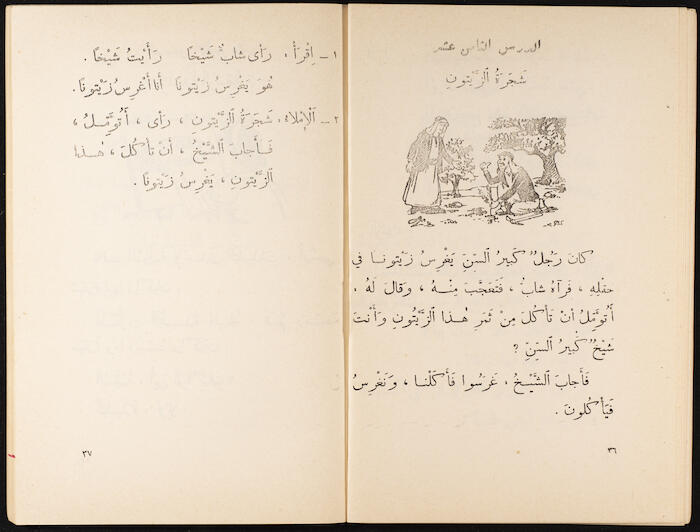 الدرس الثامن عشر
شَجَرَةُ الزَّيْتونِ
كانَ رَجُلٌ كَبيرُ السِّنِّ يَغْرِسُ زَيْتونا في
حقلِهِ ، فَرَآهُ شابٌ ، فَتَعَجَّبَ مِنْهُ ، وَقالَ لَهُ .
أَتُوَمِّلُ أنْ تَأكُلَ مِنْ ثَمَرِ هٰذا الزَّيْتُونِ وَأَنْتَ
شَيْخٌ كَبيرُ السِّنِّ ؟
فَأَجابَ الشَّيْخُ ، غَرَسُوا فَأَكَلْنا ، وَنَغْرِسُ
فَيَأكُلونَ .
٣٦
١ - اِقْرَأْ : رَأى شابٌ شَيْخًا رَأَيْتُ شَيْخًا .
هُوَ يَغْرِسُ زَيْتونًا أنا أَغْرِسُ زَيْتونًا.
٢ - اَلْإِملاءُ : شَجَرَةُ الزَّيْتونِ ، رَأى ، أَتُوَمِّلُ ،
فَأَجابَ الشَّيْخُ ، أنْ تَأكُلَ ، هٰذا
الزَّيْتونِ ، يَغْرِسُ زَيْتونًا .
٣٧